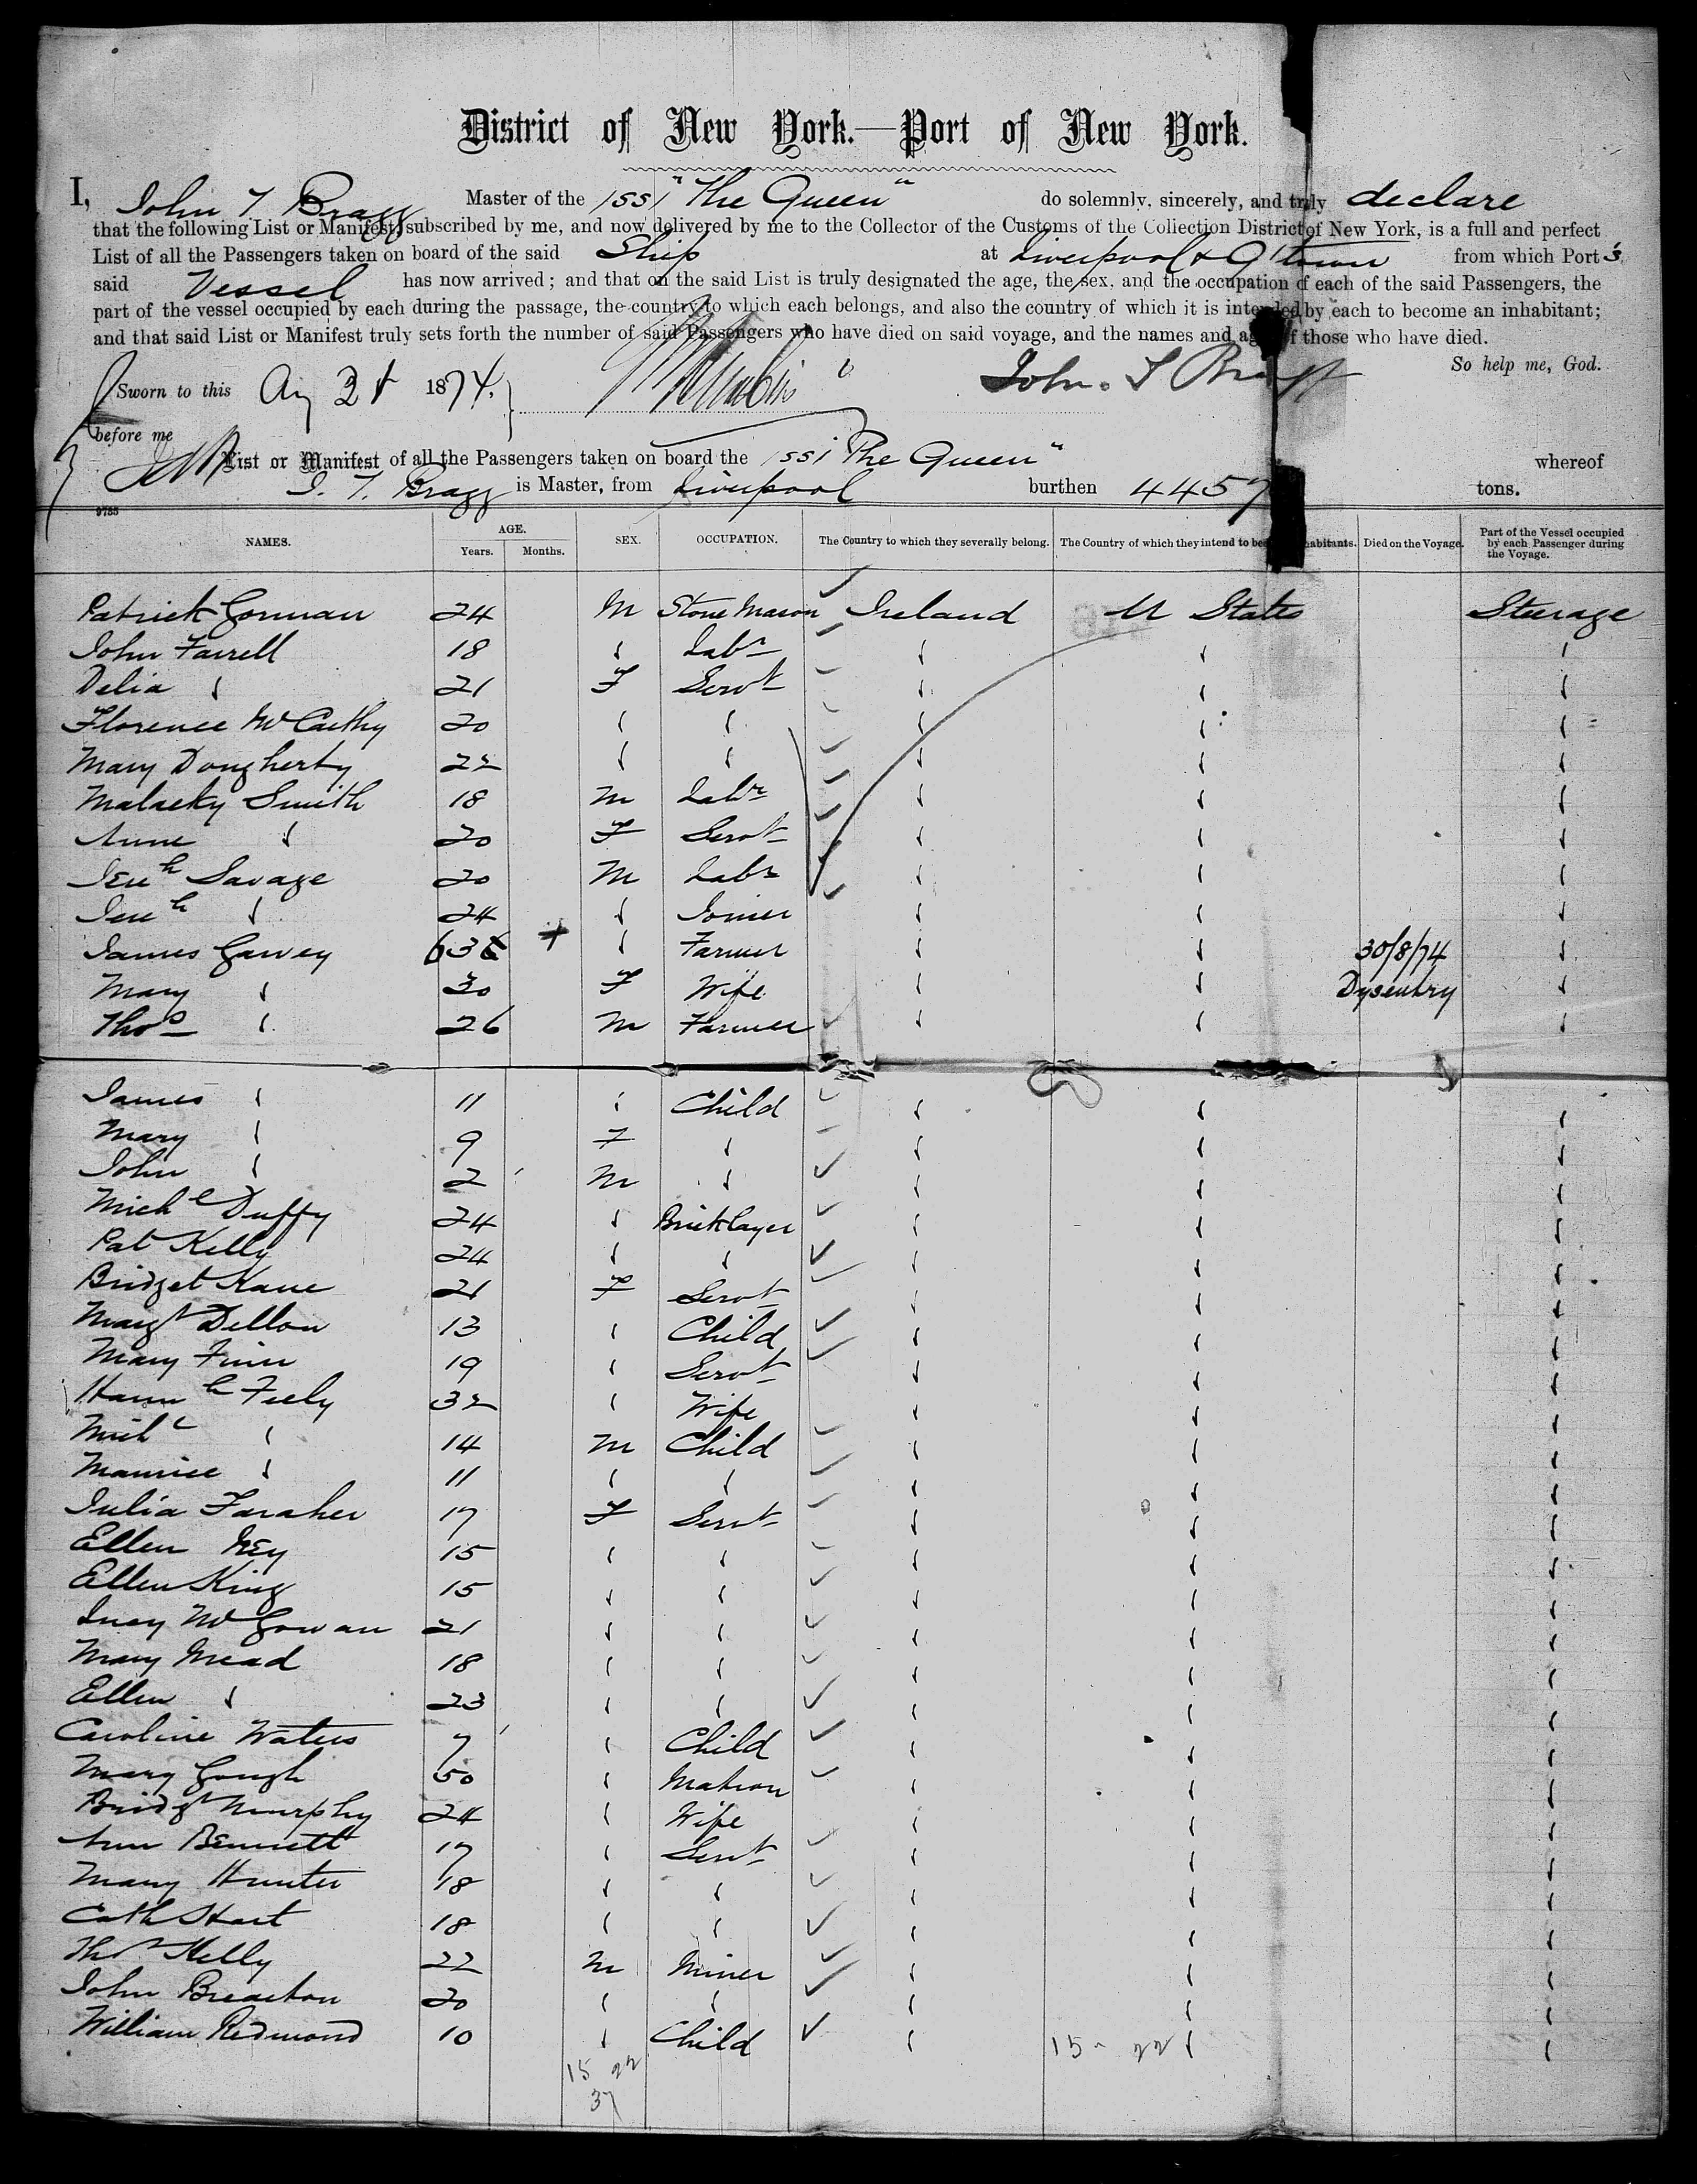 District of New York.—Port of New York.
I, John T Bragg Master of the 1ssi "The Queen" do solemnly, sincerely, and truly declare
that the following List or Manifest, subscribed by me, and now delivered by me to the Collector of the Customs of the Collection District of New York, is a full and perfect
List of all the Passengers taken on board of the said Ship at Liverpool & Qtown from which Port s
said Vessel has now arrived; and that on the said List is truly designated the age, the sex, and the occupation of each of the said Passengers, the
part of the vessel occupied by each during the passage, the country to which each belongs, and also the country of which it is intended by each to become an inhabitant;
and that said List or Manifest truly sets forth the number of said Passengers who have died on said voyage, and the names and ages of those who have died.
So help me, God.
Sworn to this Aug 31 1874. John. T Bragg
before me
List or Manifest of all the Passengers taken on board the 1ssi "The Queen" whereof
J. T. Bragg is Master, from Liverpool burthen 4457 tons.
9785
NAMES. AGE. Years. Months. SEX. OCCUPATION. The Country to which they severally belong. The Country of which they intend to become inhabitants. Died on the Voyage. Part of the Vessel occupied by each Passenger during the Voyage.
Patrick Gorman 24 M Stone Mason Ireland U States Steerage
John Farrell 18 " Labr " " "
Delia " 21 F Servt " " "
Florence McCarthy 20 " " " " "
Mary Dougherty 22 " " " " "
Malacky Smith 18 M Labr " " "
Anne " 20 F Servt " " "
Jereh Savage 20 M Labr " " "
Jereh " 24 " Joiner " " "
James Garvey 63 + " Farmer " " 30/8/74 "
Mary " 30 F Wife " " Dysentry "
Thos " 26 M Farmer " " "
James " 11 " Child " " "
Mary " 9 F " " " "
John " 2 M " " " "
Michl Duffy 24 " Bricklayer " " "
Pat Kelly 24 " " " " "
Bridget Kane 21 F Servt " " "
Margt Dellon 13 " Child " " "
Mary Finn 19 " Servt " " "
Hannh Feely 32 " Wife " " "
Michl " 14 M Child " " "
Maurice " 11 " " " " "
Julia Faraher 17 F Servt " " "
Ellen Ney 15 " " " " "
Ellen King 15 " " " " "
Lucy McGowan 21 " " " " "
Mary Mead 18 " " " " "
Ellen " 23 " " " " "
Caroline Waters 7 " Child " " "
Mary Gough 50 " Matron " " "
Bridgt Murphy 24 " Wife " " "
Ann Bennett 17 " Servt " " "
Mary Hunter 18 " " " " "
Cath Hart 18 " " " " "
Thos Kelly 22 M Miner " " "
John Brearton 20 " " " " "
William Redmond 10 " Child " " "
15 22 15 - 22
37